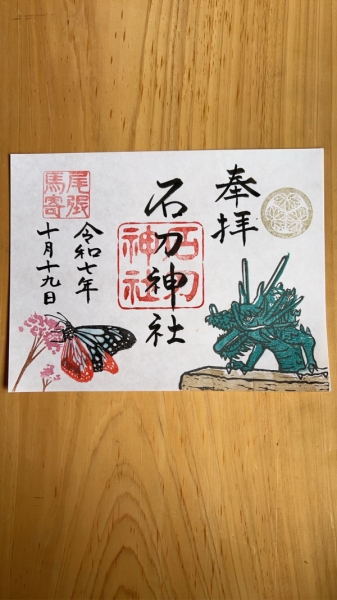 奉拝
石刀神社
石刀神社
令和七年
十月十九日
尾張
馬寄